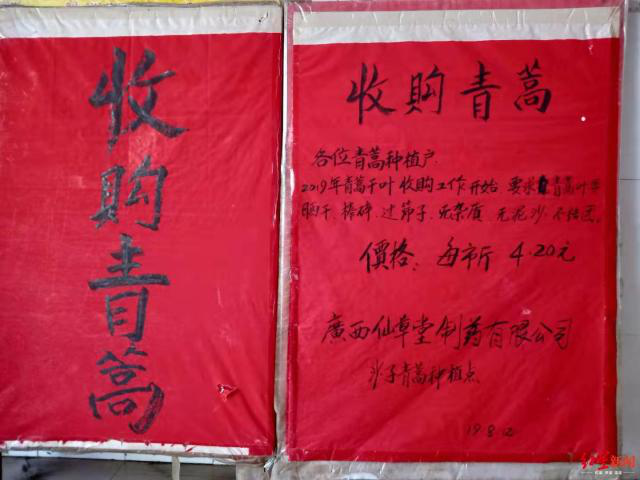 收购青蒿
收购青蒿
各位青蒿种植户
2019年青蒿干叶收购工作开始 要求青蒿叶
晒干、捲碎、过筛子、无杂质 无泥沙、不结团。
價格：每市斤 4.20元
廣西仙草堂制药有限公司
沙子青蒿种植点
19.8.12
红星新闻